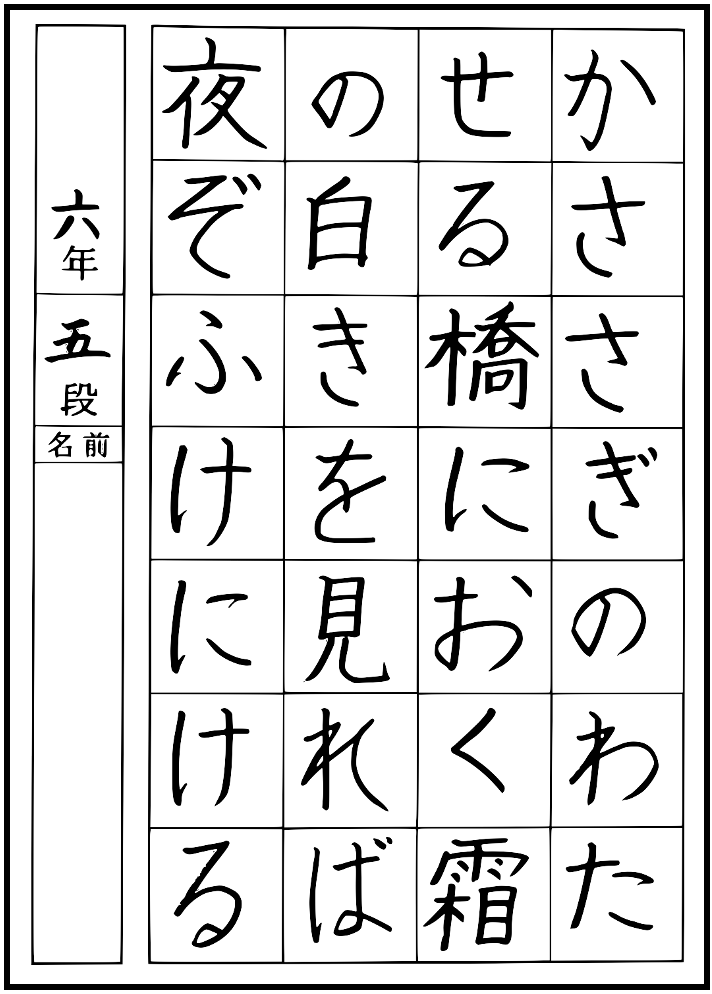 かささぎのわた
せる橋におく霜
の白きを見れば
夜ぞふけにける
六年
五段
名前